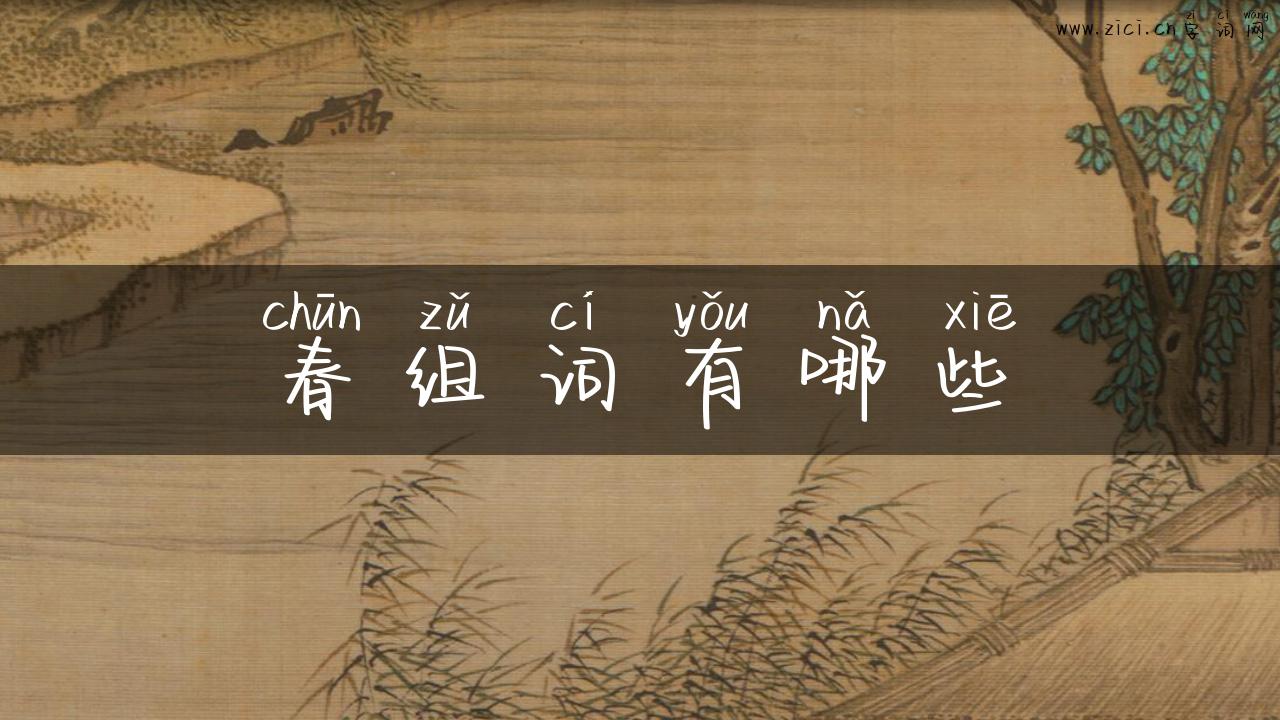 zì cí wǎng
www.zici.cn字词网
chūn zǔ cí yǒu nǎ xiē
春组词有哪些